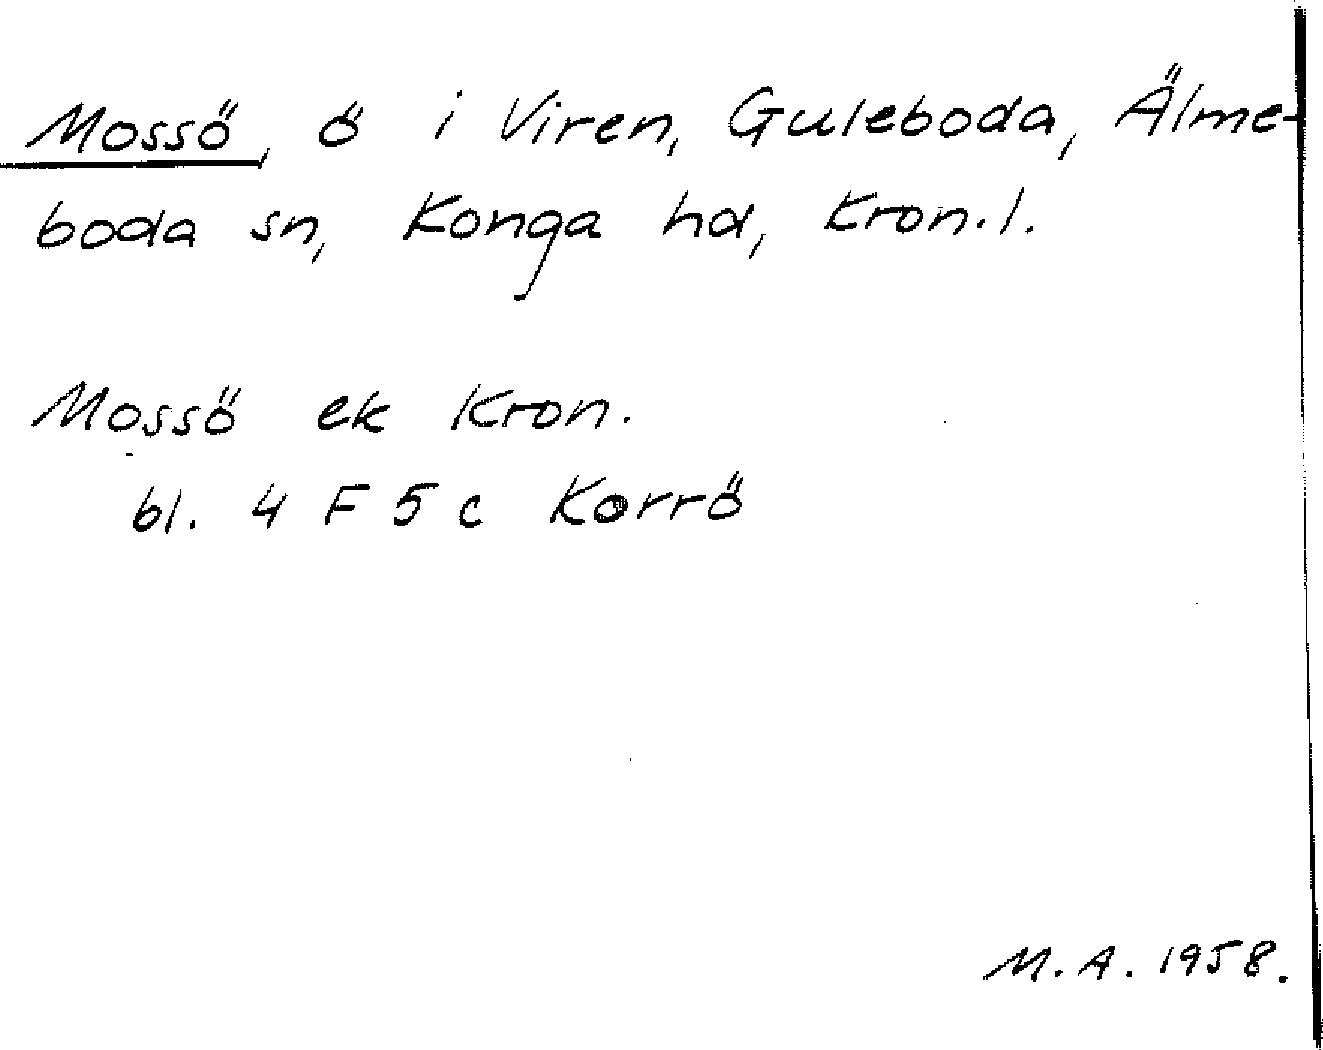 Mossö, ö i Viren, Guleboda, Älme-
boda sn, Konga hd, Kron.l.
Mossö ek Kron.
bl. 4 F 5 c Korrö
M.A. 1958.